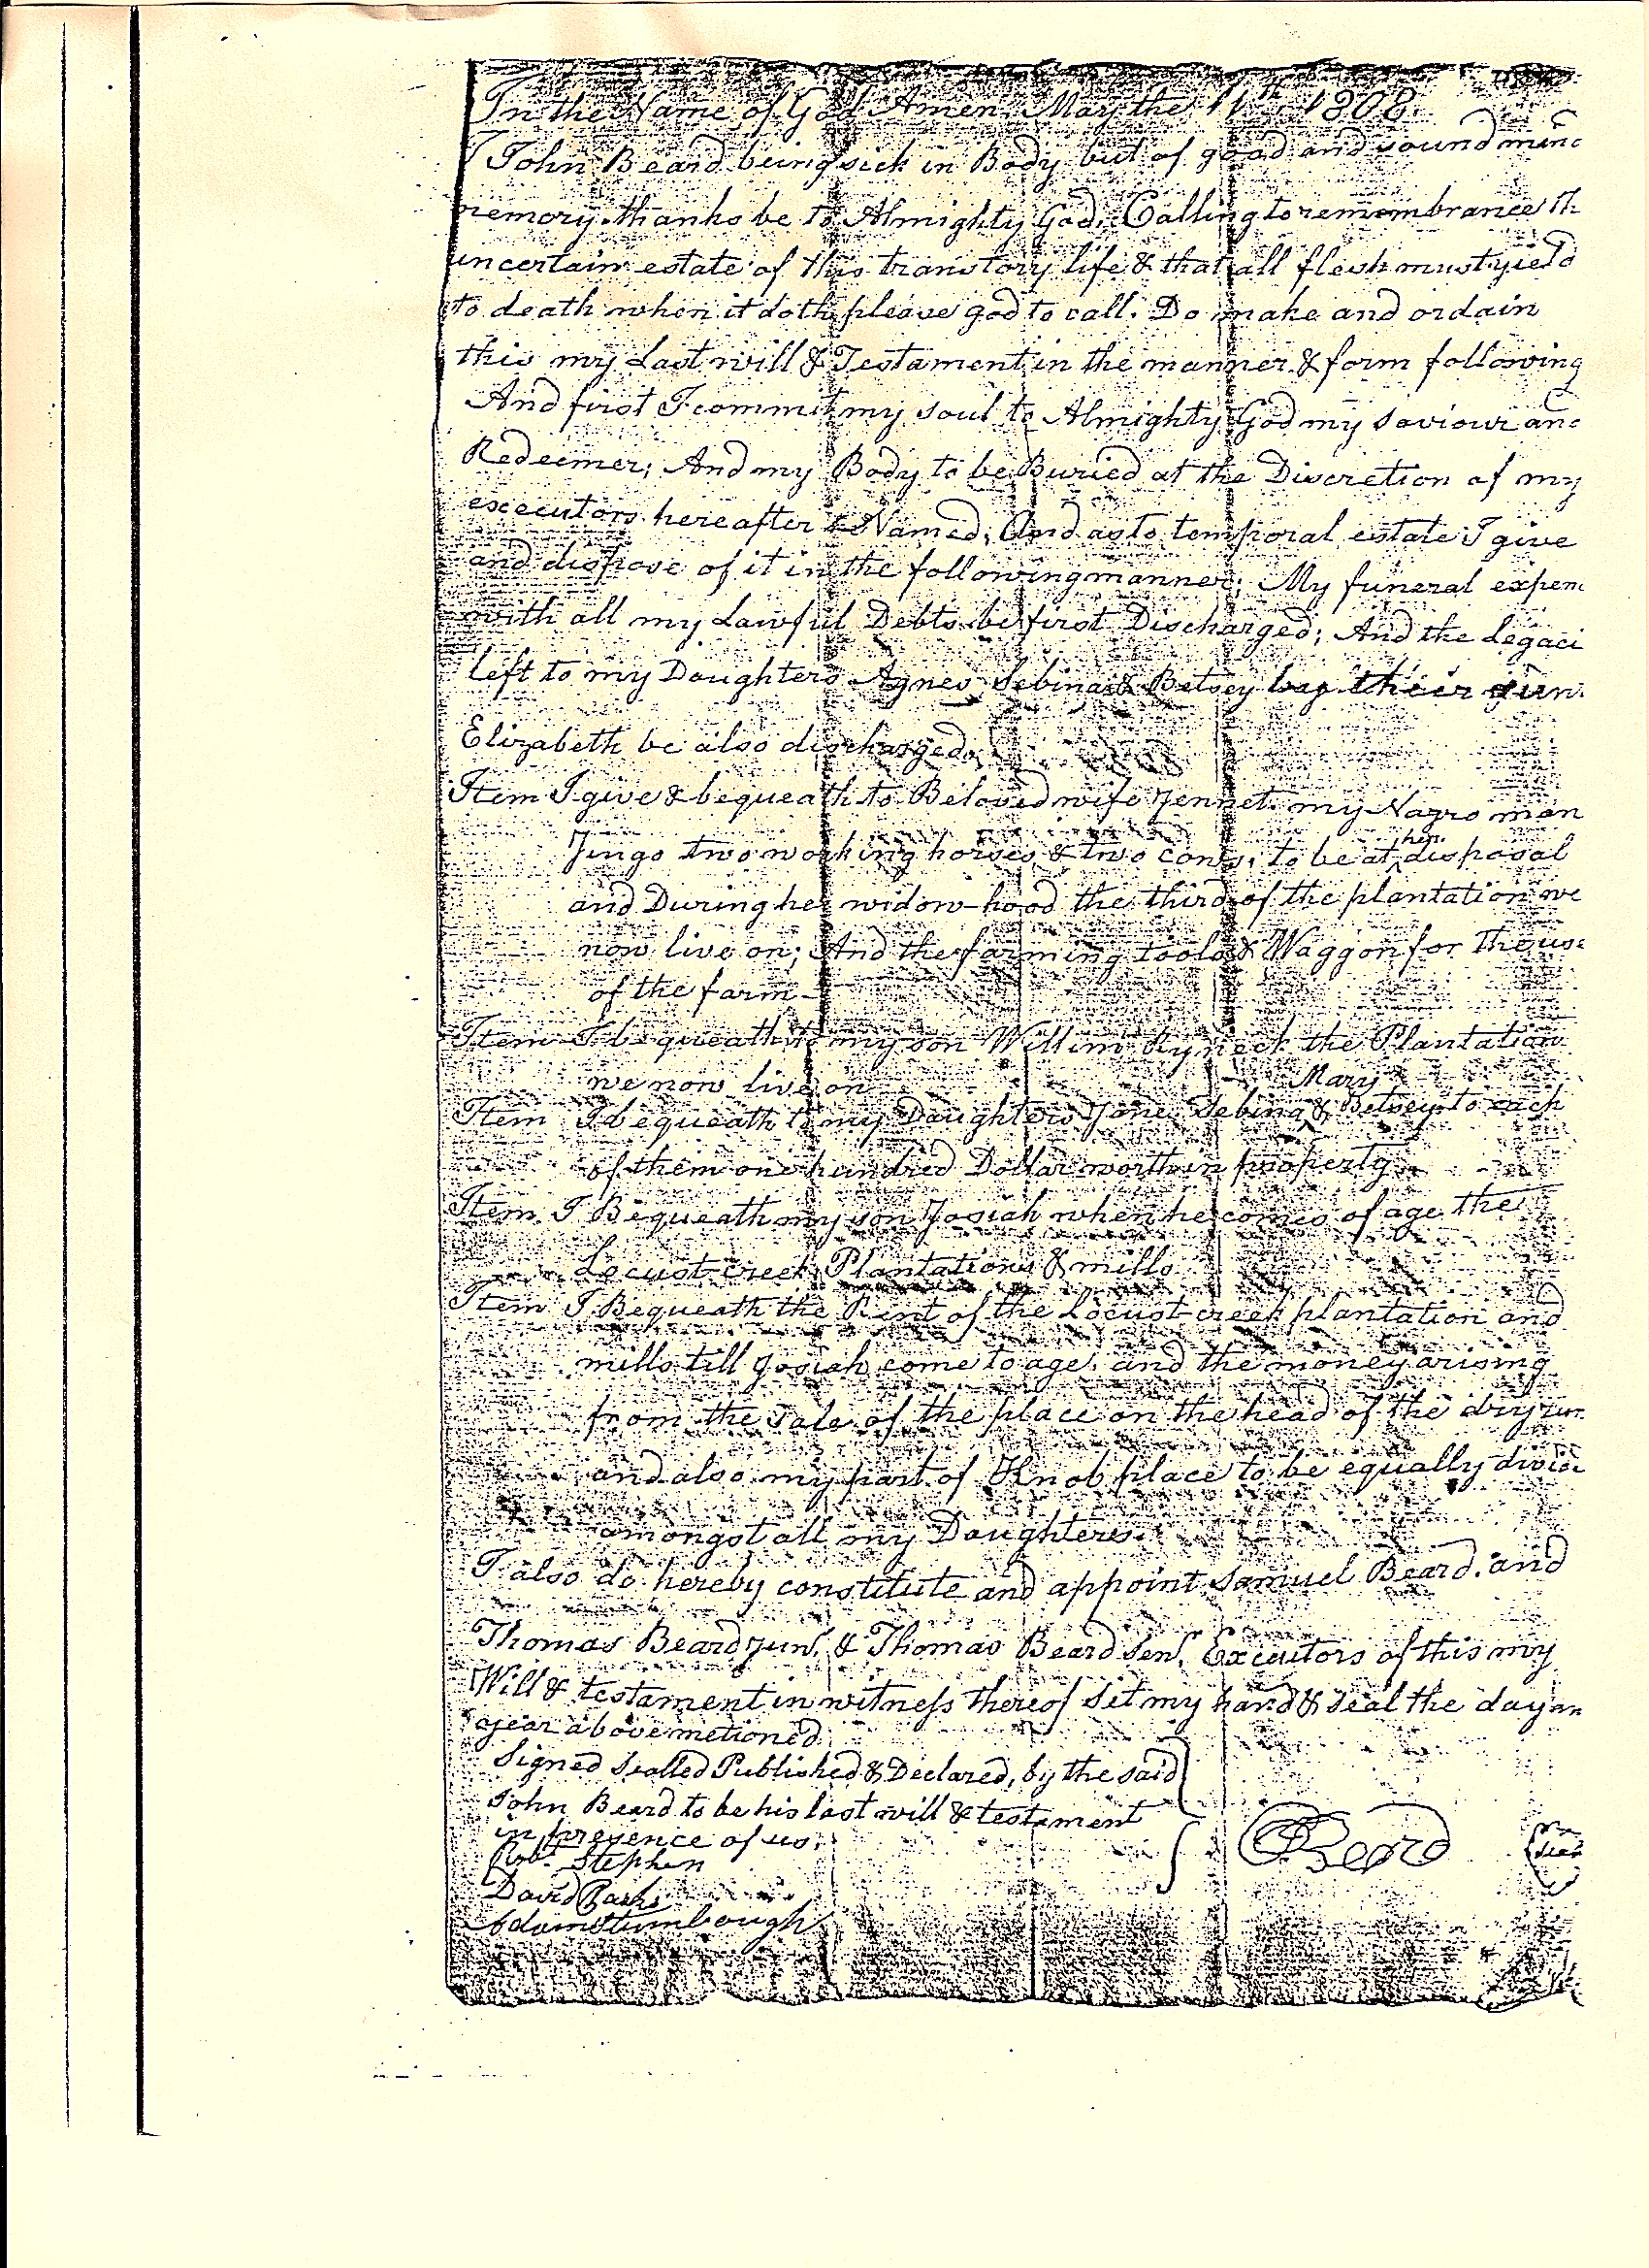 In the Name of God Amen. May the 11th 1808
I John Beard being sick in Body but of good and sound mind
memory thanks be to Almighty God, Calling to remembrance th
uncertain estate of this transtory life & that all flesh must yield
to death when it doth please god to call. Do make and ordain
this my Last will & Testament in the manner & form following
And first I commit my soul to Almighty God my saviour and
Redeemer; And my Body to be Buried at the Discretion of my
executors hereafter Named; And as to temporal estate I give
and dispose of it in the following manner; My funeral expen
with all my Lawful Debts be first Discharged; And the Legaci
left to my Daughters Agnes Sebina & Betsey by their
Elizabeth be also discharged.
Item I give & bequeath to Beloved wife Jennet my Nagro man
Jingo two working horses & two cows, to be at her disposal
and During her widow-hood the third of the plantation we
now live on; And the farming tools & Waggon for the use
of the farm
Item I bequeath to my son the Plantation
we now live on
Item I bequeath to my Daughters Jane Sebina Mary & Betsey to each
of them one hundred Dollar worth in property
Item I Bequeath my son Josiah when he comes of age the
Locust creek Plantations & mills
Item I Bequeath the Rent of the Locust creek plantation and
mills till Josiah come to age, and the money arising
from the sale of the place on the head of the dry run
and also my part of Knob place to be equally divide
amongst all my Daughters.
I also do hereby constitute and appoint Samuel Beard and
Thomas Beard Junr. & Thomas Beard Senr. Executors of this my
Will & testament in witness thereof set my hand & seal the day an
year above metioned
Signed sealled Published & Declared, by the said
John Beard to be his last will & testament
in presence of us,
Robt. Stephen
David
Adam Stumbough
Beard